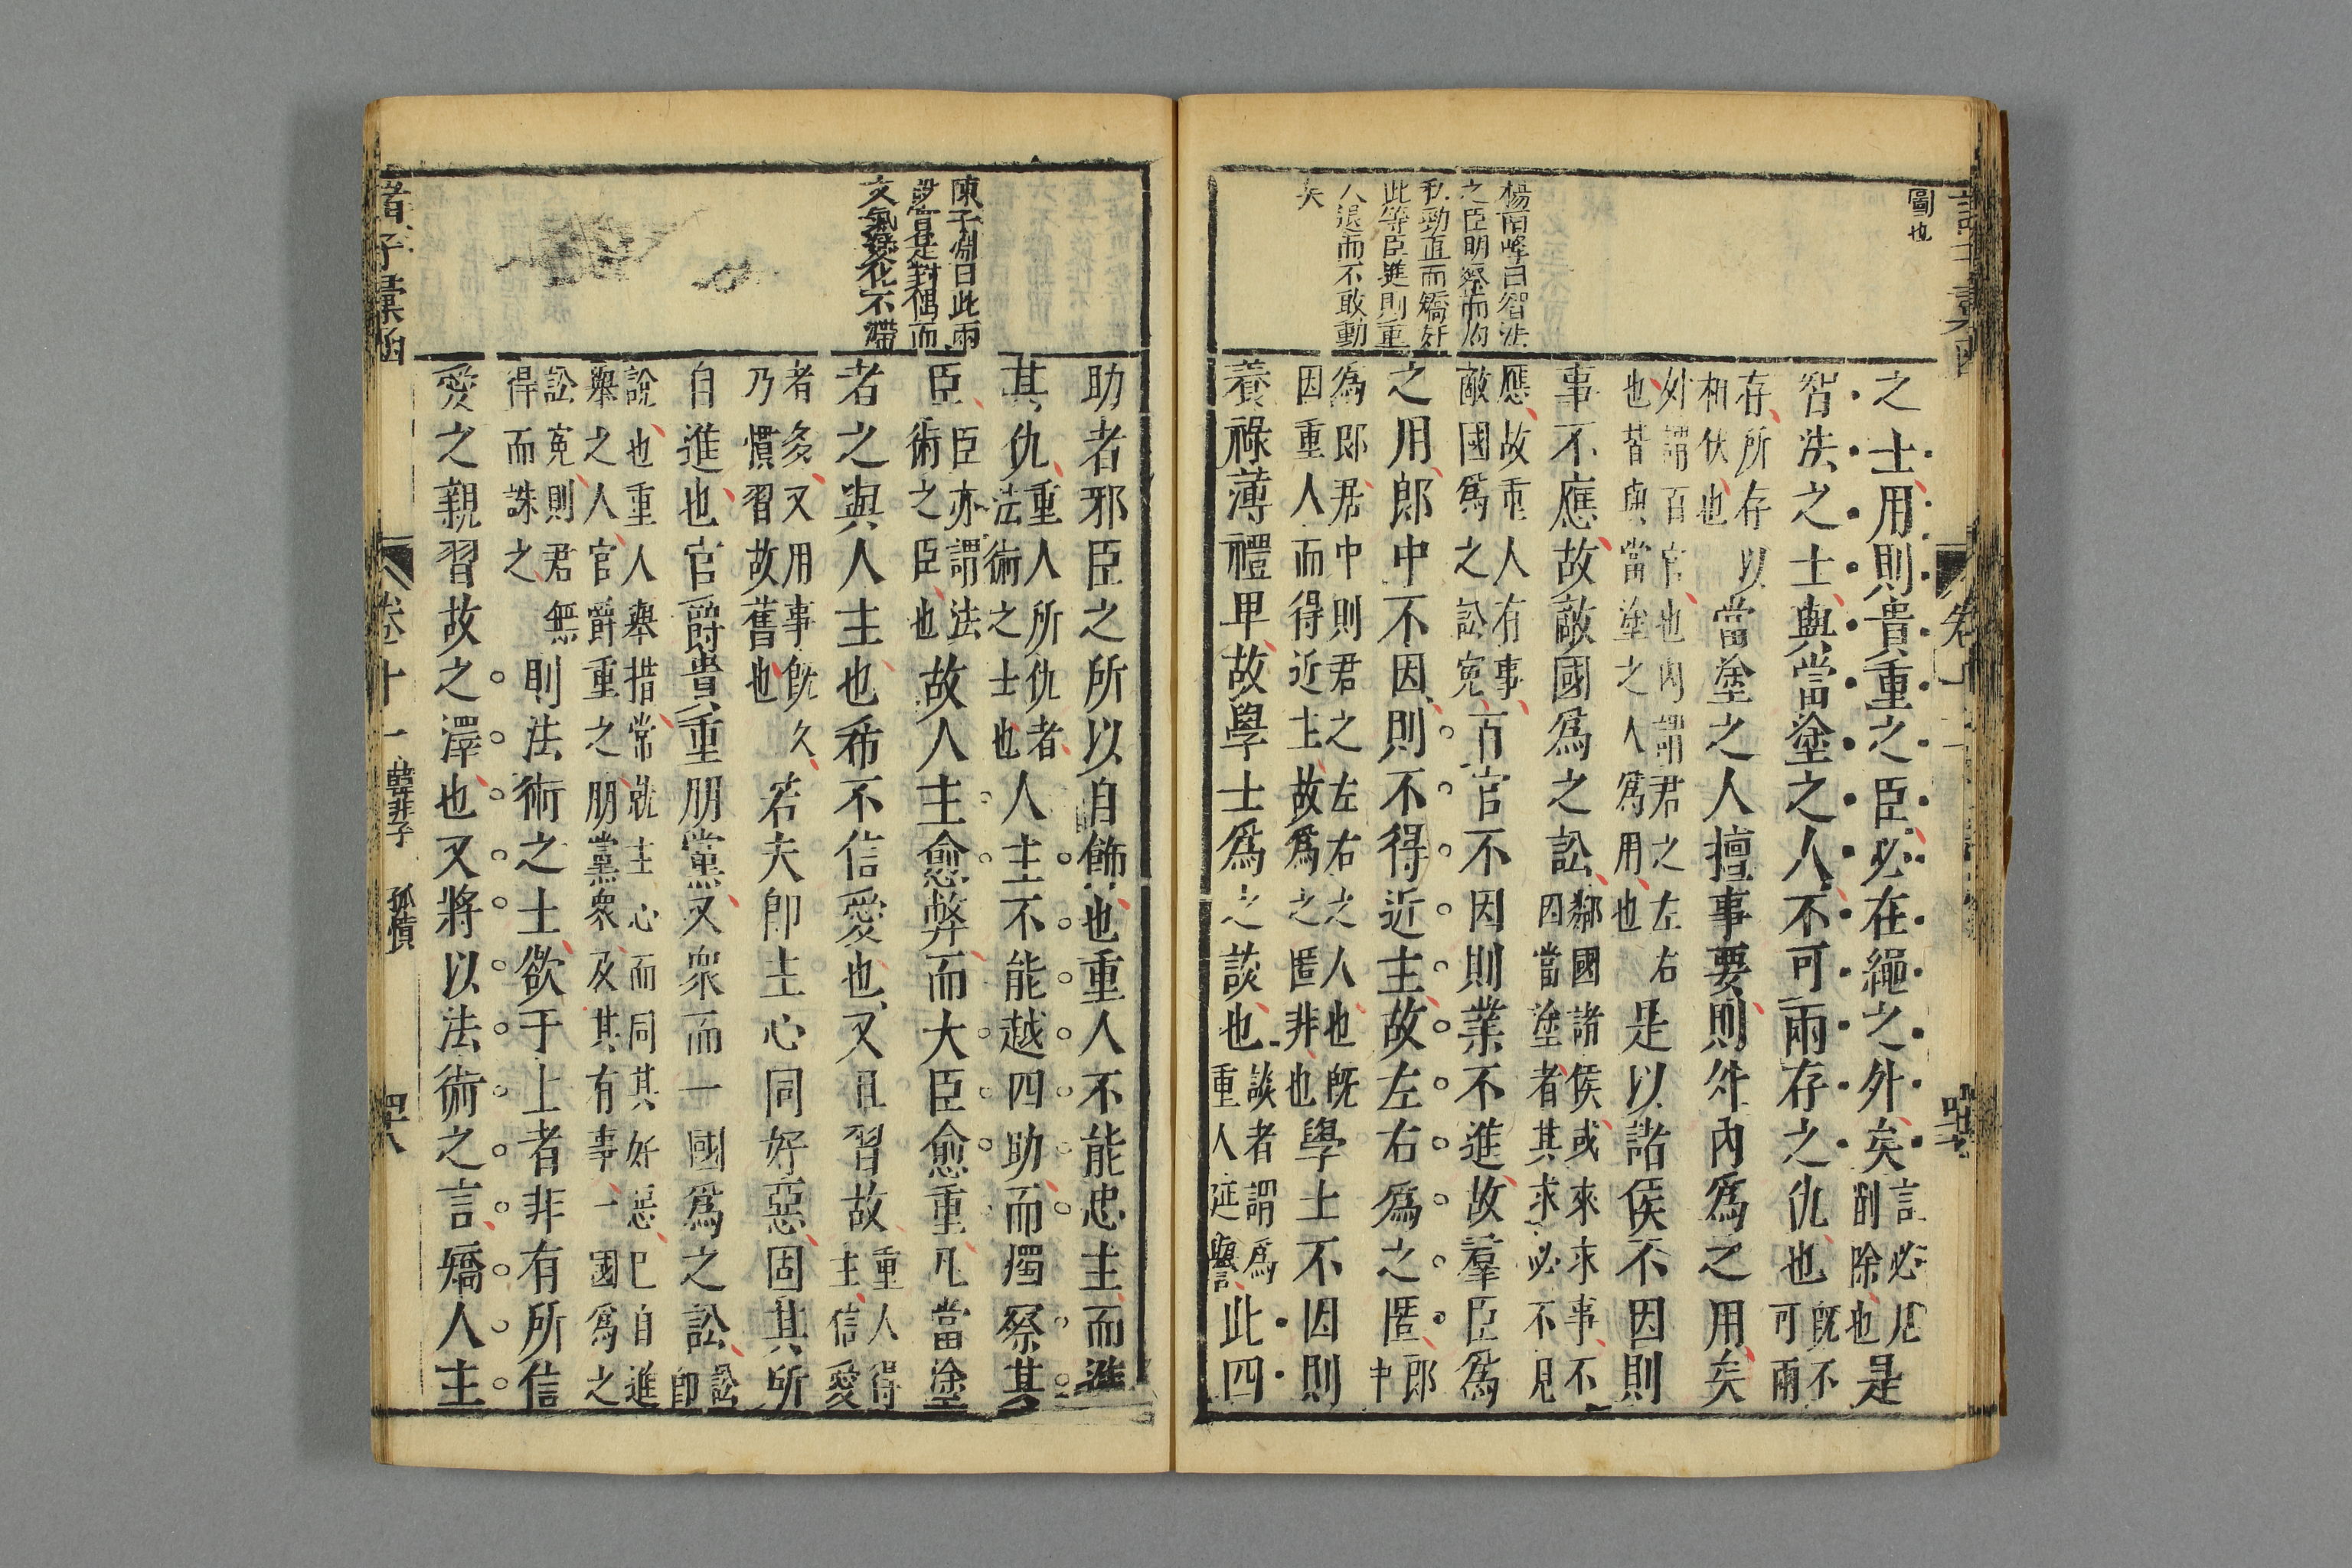 圖也
楊南峰曰智法
之臣明察而灼
私勁直而矯奸
此等臣進則重
人退而不敢動
矣
之士用則貴重之臣必在繩之外矣言必見削除也是
智法之士與當塗之人不可兩存之仇也旣不可兩
存所存以相伏也當塗之人擅事要則外內爲之用矣
外謂百官也內謂君之左右也皆與當塗之人爲用也是以諸侯不因則
事不應故敵國爲之訟鄰國諸侯或來求事不因當塗者其求必不見
應故重人有事敵國爲之訟寃百官不因則業不進故羣臣爲
之用郎中不因則不得近主故左右爲之匿郎中
爲郎居中則君之左右之人也旣因重人而得近主故爲之匿非也學士不因則
養祿薄禮卑故學士爲之談也談者謂爲重人延譽此四
陳子淵曰此兩
段宜是對偶而
文氣變化不滯
助者邪臣之所以自飾也重人不能忠主而進
其仇重人所仇者法術之士也人主不能越四助而燭察其
臣臣亦謂法術之臣也故人主愈弊而大臣愈重凡當塗
者之與人主也希不信愛也又且習故重人得主信愛
者多又用事旣久乃慣習故舊也若夫卽主心同好惡固其所
自進也官爵貴重朋黨又衆而一國爲之訟訟卽
說也重人舉措常就主心而同其好惡已自進舉之人官爵重之朋黨衆及其有事一國爲之
訟寃則君無得而誅之則法術之士欲于上者非有所信
愛之親習故之澤也又將以法術之言矯人主
諸子彙函 卷十一 韓非子 孤憤